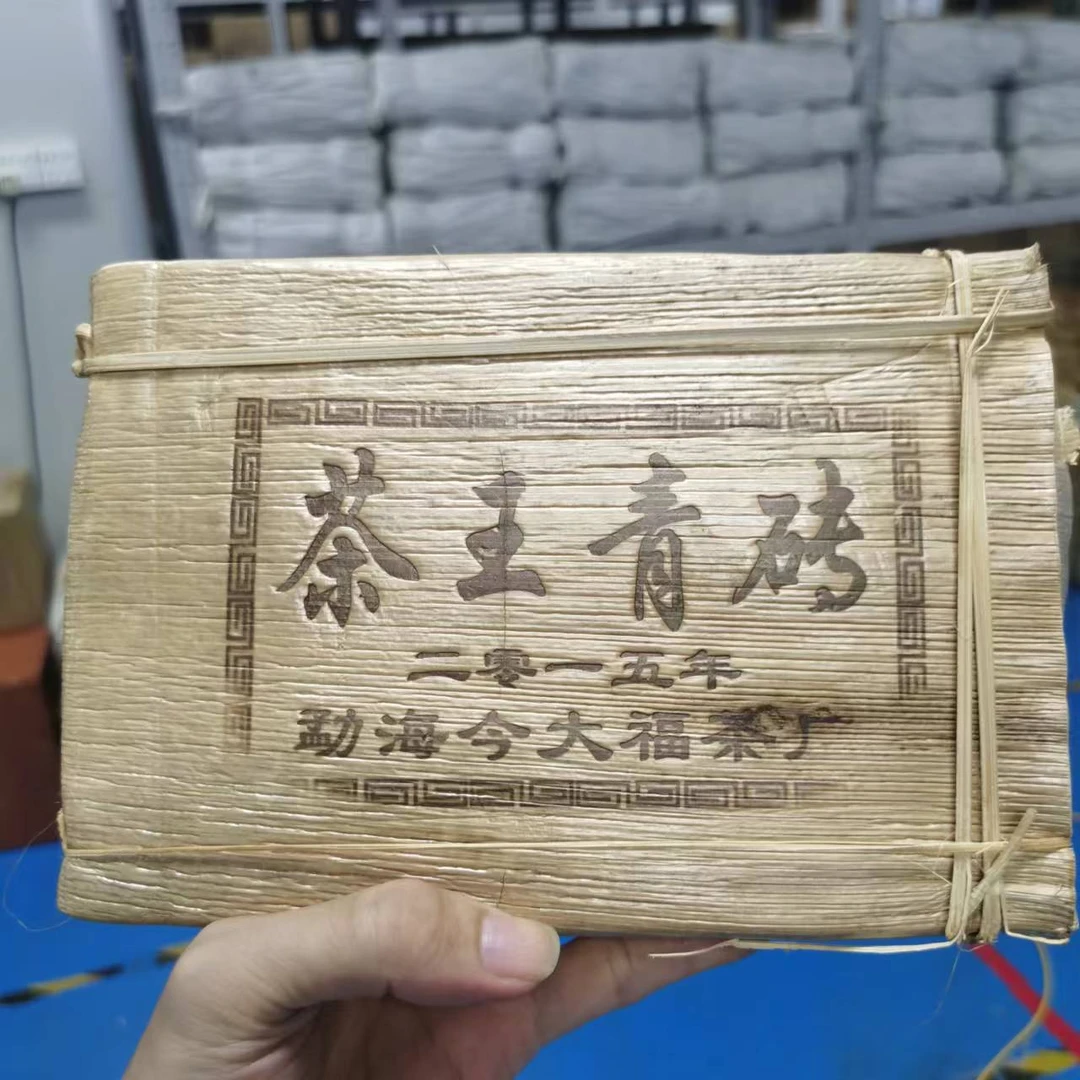 茶王青砖
二零一五年
勐海今大福茶厂